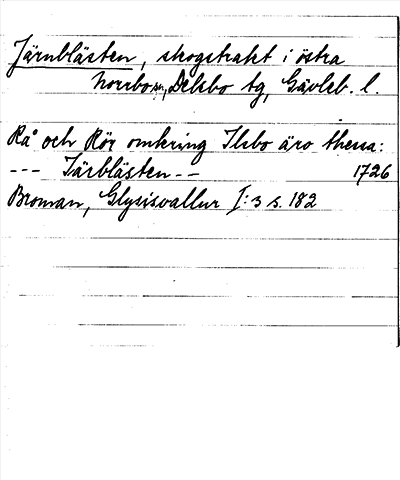 Järnblästen, skogstrakt i östra
Norrbo sn, Delsbo tg, Gävleb. l.
Rå och Rör omkring Ilsbo äro thessa:
--- Järblästen -- 1726
Broman, Glysisvallur I:3 s. 182